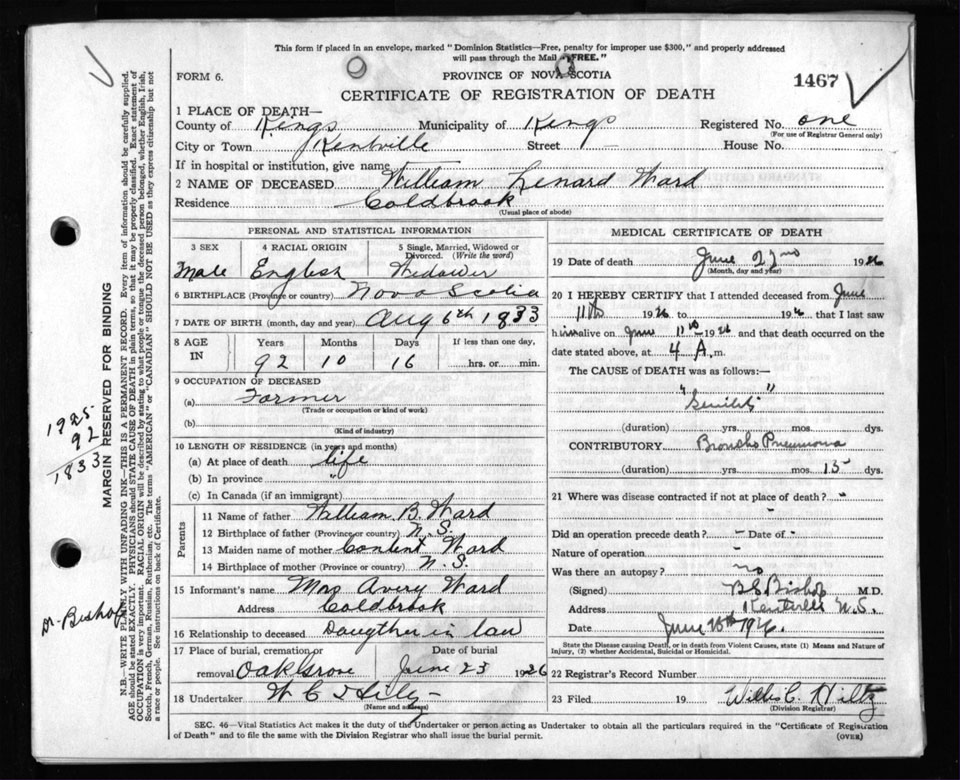 This form if placed in an envelope, marked "Dominion Statistics—Free, penalty for improper use $300," and properly addressed
will pass through the Mail FREE.
FORM 6.
PROVINCE OF NOVA SCOTIA
1467
CERTIFICATE OF REGISTRATION OF DEATH
1 PLACE OF DEATH—
County of Kings Municipality of Kings Registered No. one
(For use of Registrar General only)
City or Town Kentville Street — House No.
If in hospital or institution, give name
2 NAME OF DECEASED William Lenard Ward
Residence Coldbrook
(Usual place of abode)
PERSONAL AND STATISTICAL INFORMATION
3 SEX 4 RACIAL ORIGIN 5 Single, Married, Widowed or Divorced. (Write the word)
Male English Widower
6 BIRTHPLACE (Province or country) Nova Scotia
7 DATE OF BIRTH (month, day and year) Aug 6th 1833
8 AGE IN Years Months Days If less than one day,
92 10 16 hrs. or min.
9 OCCUPATION OF DECEASED
(a) Farmer
(Trade or occupation or kind of work)
(b)
(Kind of industry)
10 LENGTH OF RESIDENCE (in years and months)
(a) At place of death life
(b) In province "
(c) In Canada (if an immigrant)
Parents
11 Name of father William B. Ward
12 Birthplace of father (Province or country) N.S.
13 Maiden name of mother Content Ward
14 Birthplace of mother (Province or country) N.S.
15 Informant's name Mrs Avery Ward
Address Coldbrook
16 Relationship to deceased Daugther in law
17 Place of burial, cremation or removal Oak Grove Date of burial June 23 1926
18 Undertaker
(Name and address)
MEDICAL CERTIFICATE OF DEATH
19 Date of death June 22nd 1926
(Month, day and year)
20 I HEREBY CERTIFY that I attended deceased from June
11th 1926 to 1926 that I last saw
him alive on June 11th 1926 and that death occurred on the
date stated above, at 4 A.m.
The CAUSE of DEATH was as follows:—
"Senility"
(duration) yrs. mos. dys.
CONTRIBUTORY Broncho Pneumonia
(duration) yrs. mos. 15 dys.
21 Where was disease contracted if not at place of death? "
Did an operation precede death? – Date of -
Nature of operation -
Was there an autopsy? no
(Signed) B.S. Bishop M.D.
Address Kentville N.S.
Date June 1926.
State the Disease causing Death, or in death from Violent Causes, state (1) Means and Nature of
Injury, (2) whether Accidental, Suicidal or Homicidal.
22 Registrar's Record Number
23 Filed 19 Willis C. Hiltz
(Division Registrar)
SEC. 46—Vital Statistics Act makes it the duty of the Undertaker or person acting as Undertaker to obtain all the particulars required in the "Certificate of Registration
of Death" and to file the same with the Division Registrar who shall issue the burial permit.
(OVER)
MARGIN RESERVED FOR BINDING
N.B.—WRITE PLAINLY WITH UNFADING INK—THIS IS A PERMANENT RECORD. Every item of information should be carefully supplied.
AGE should be stated EXACTLY. PHYSICIANS should STATE CAUSE OF DEATH in plain terms, so that it may be properly classified. Exact statement of
OCCUPATION is very important. RACIAL ORIGIN will be described by stating to what people or tongue the deceased person belonged, whether English, Irish,
Scotch, French, German, Russian, Ruthenian, etc. The terms "AMERICAN" or "CANADIAN" SHOULD NOT BE USED as they express citizenship but not
a race or people. See instructions on back of Certificate.
1925
92
1833
Dr. Bishop